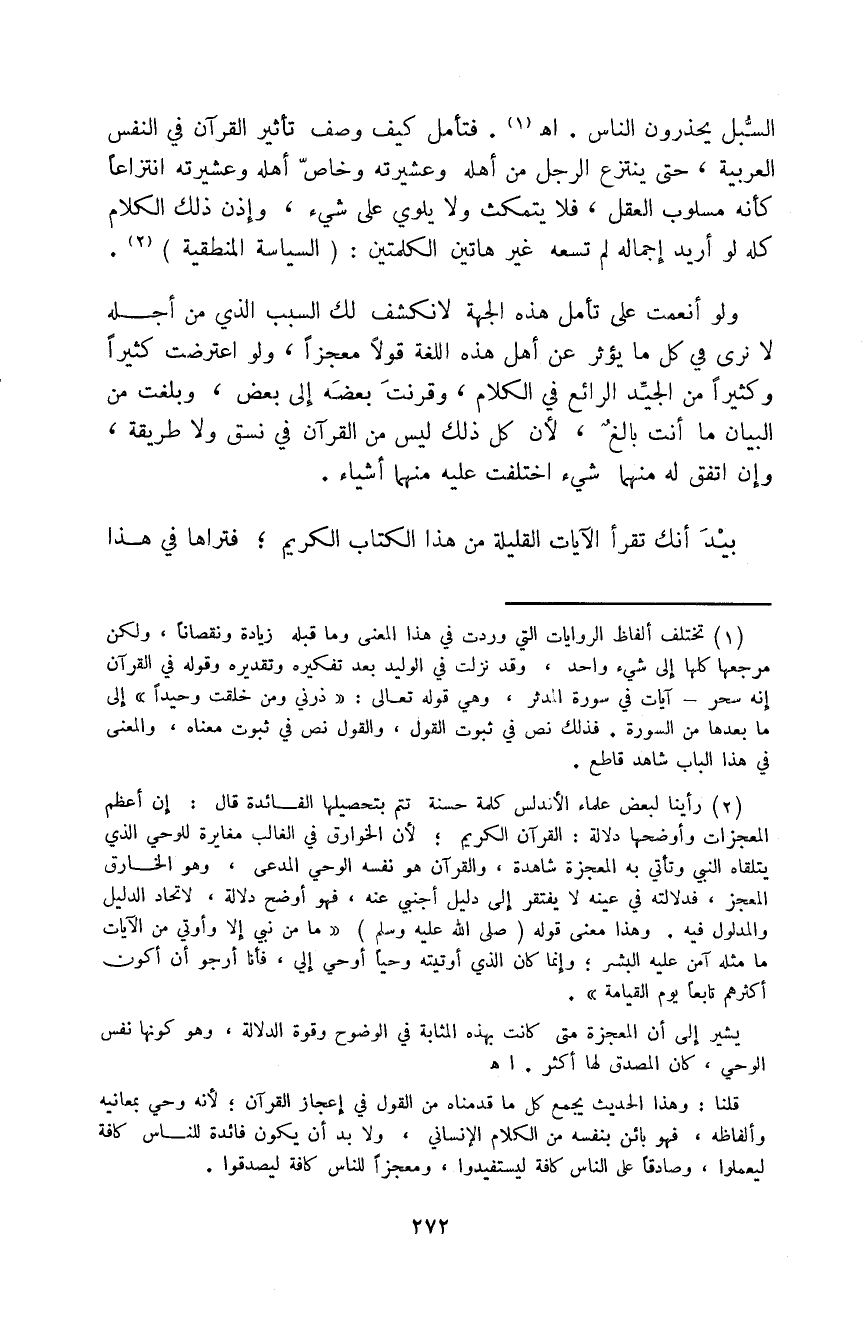 السُّبل يحذرون الناس . اه (١) . فتأمل كيف وصف تأثير القرآن في النفس
العربية ، حتى ينتزع الرجل من أهله وعشيرته وخاصّ أهله وعشيرته انتزاعاً
كأنه مسلوب العقل ، فلا يتمكث ولا يلوي على شيء ، وإذن ذلك الكلام
كله لو أريد إجماله لم تسعه غير هاتين الكلمتين : ( السياسة المنطقية ) (٢) .
ولو أنعمت على تأمل هذه الجهة لانكشف لك السبب الذي من أجـــله
لا نرى في كل ما يؤثر عن أهل هذه اللغة قولاً معجزاً ، ولو اعترضت كثيراً
وكثيراً من الجيِّد الرائع في الكلام ، وقرنتَ بعضَه إلى بعض ، وبلغت من
البيان ما أنت بالغٌ ، لأن كل ذلك ليس من القرآن في نسق ولا طريقة ،
وإن اتفق له منها شيء اختلفت عليه منها أشياء .
بيْدَ أنك تقرأ الآيات القليلة من هذا الكتاب الكريم ؛ فتراها في هــذا
(١) تختلف ألفاظ الروايات التي وردت في هذا المعنى وما قبله زيادة ونقصاناً ، ولكن
مرجعها كلها إلى شيء واحد ، وقد نزلت في الوليد بعد تفكيره وتقديره وقوله في القرآن
إنه سحر – آيات في سورة المدثر ، وهي قوله تعـالى : « ذرني ومن خلقت وحيداً » إلى
ما بعدها من السورة . فذلك نص في ثبوت القول ، والقول نص في ثبوت معناه ، والمعنى
في هذا الباب شاهد قاطع .
(٢) رأينا لبعض علماء الأندلس كلمة حسنة تتم بتحصيلها الفــائدة قال : إن أعظم
المعجزات وأوضحها دلالة : القرآن الكريم ؛ لأن الخوارق في الغالب مغايرة للوحي الذي
يتلقاه النبي وتأتي به المعجزة شاهدة ، والقرآن هو نفسه الوحي المدعى ، وهو الخــارق
المعجز ، فدلالته في عينه لا يفتقر إلى دليل أجنبي عنه ، فهو أوضح دلالة ، لاتحاد الدليل
والمدلول فيه . وهذا معنى قوله ( صلى الله عليه وسلم ) « ما من نبي إلا وأوتي من الآيات
ما مثله آمن عليه البشر ؛ وإنما كان الذي أوتيته وحياً أوحي إلي ، فأنا أرجو أن أكون
أكثرهم تابعاً يوم القيامة » .
يشير إلى أن المعجزة متى كانت بهذه المثابة في الوضوح وقوة الدلالة ، وهو كونها نفس
الوحي ، كان المصدق لها أكثر . ا ه
قلنا : وهذا الحديث يجمع كل ما قدمناه من القول في إعجاز القرآن ؛ لأنه وحي بمعانيه
وألفاظه ، فهو بائن بنفسه من الكلام الإنساني ، ولا بد أن يكون فائدة للنــاس كافة
ليعملوا ، وصادقاً على الناس كافة ليستفيدوا ، ومعجزاً للناس كافة ليصدقوا .
٢٧٢